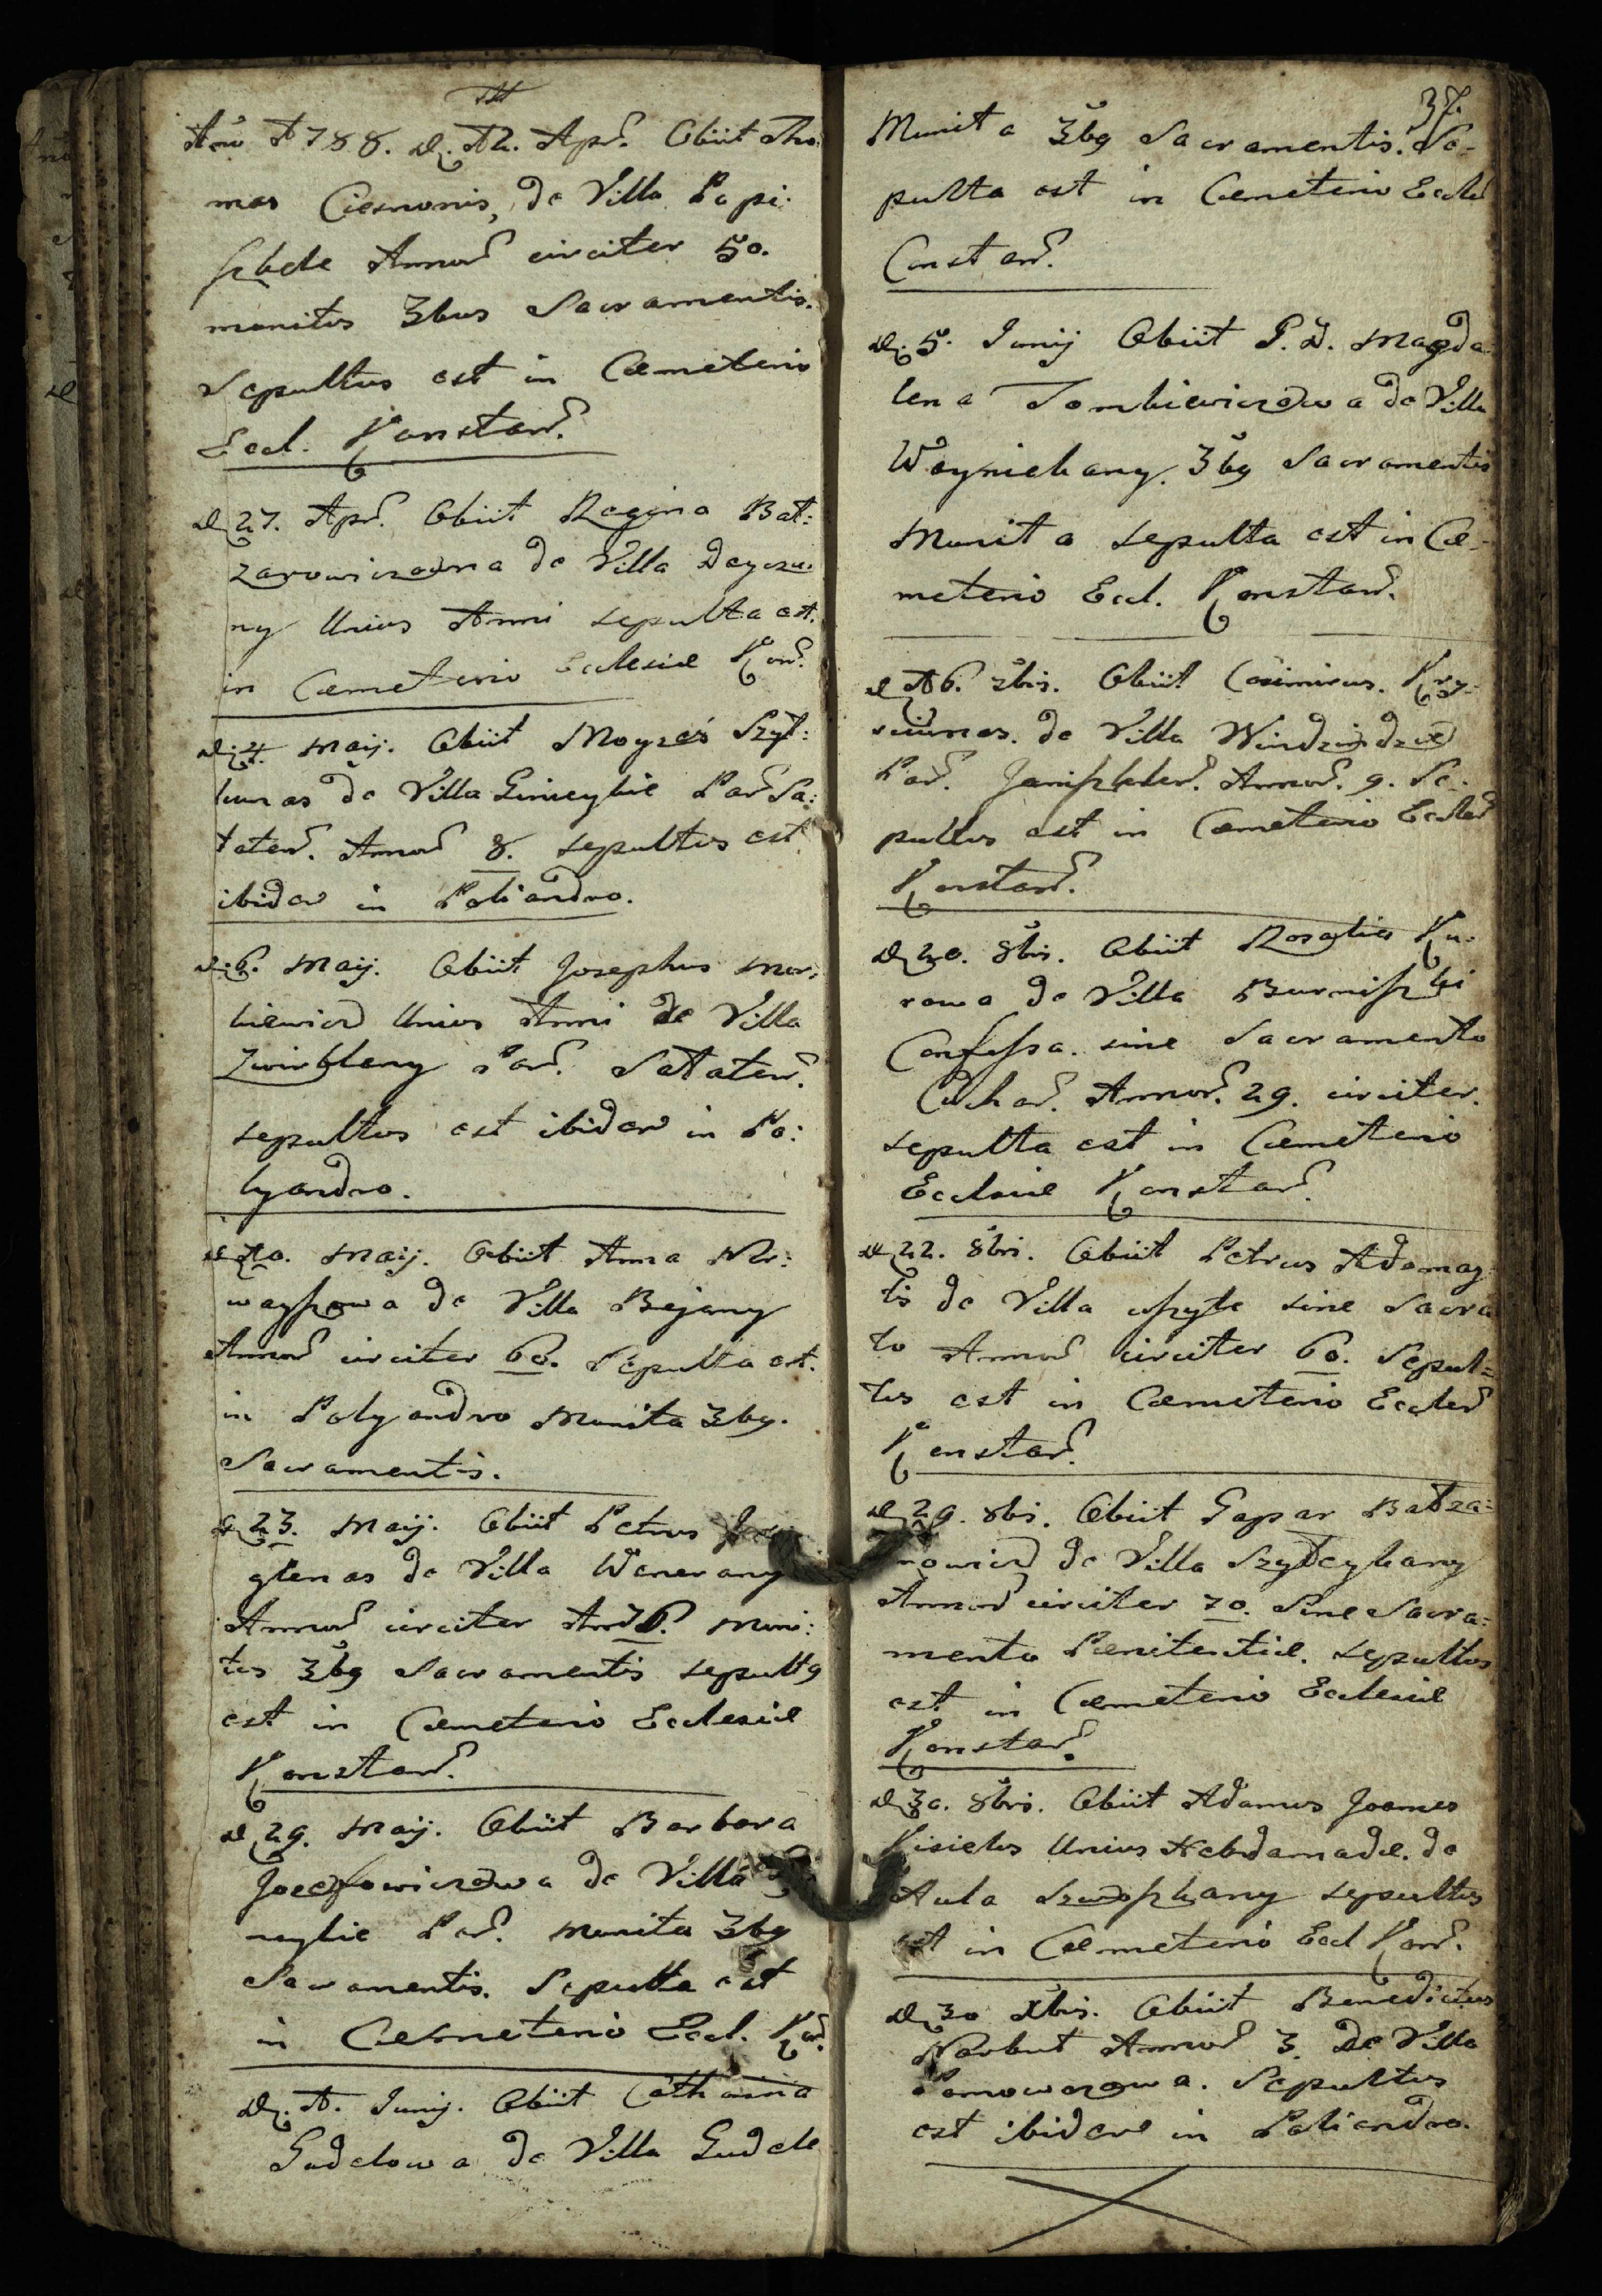 Ano 1788. D. 12. Apr. Obiit Tho:
mas Ciesnonis, de Villa Popi:
szkele Annor circiter 50.
munitus 3bus Sacramentis.
Sepultus est in Cæmeterio
Eccl. Konstan.
D 27. Apr. Obiit Regina Bat:
zarowiczowna de Villa Dayczu:
ny Unius Anni sepulta est.
in Cæmeterio Ecclesiæ Kon.
D. 4. Maij. Obiit Moyzes Szyt:
kunas de Villa Gineykie Par Sa:
taten. Annor 8. sepultus est
ibidem in Poliandro.
D. 6. Maij. Obiit Josephus Mar,
kiewicz Unius Anni de Villa
Zwirblany Par. Sataten.
sepultus est ibidem in Po:
lyandro.
D 10. Maij. Obiit Anna Nor:
wayszowa de Villa Bejany
Annor circiter 60. Sepulta est.
in Polyandro Munita 3bg.
Sacramentis.
D 23. Maij. Obiit Petrus
glenas de Villa Wenerany
Annor circiter 76. Muni:
tus 3bg Sacramentis sepultg
est in Cæmeterio Ecclesiæ
Konstan.
D 29. Maij. Obiit Barbara
Jozefowiczowa de Villa
neykie Par. Munita 3bg
Sacramentis. Sepulta est
in Cæmeterio Eccl. Kon.
D. 1. Junij. Obiit Catharina
Gudelowa de Villa Gudele
37.
Munita 3bg Sacramentis. Se-
pulta est in Cæmeterio Eccle
Constan.
D. 5. Junij Obiit P. D. Magda
lena Tomkiewiczowa de Villa
Woyniekany. 3bg Sacramentis
Munita sepulta est in Cæ-
meterio Eccl. Konstan.
D 16. 7bris. Obiit Casimirus. Kry-
sciunas. de Villa Windziudzie
Par. Janiszkelen. Annor. 9. Se-
pultus est in Cæmeterio Eccles
Konstan.
D 20. 8bris. Obiit Rozalia Ku-
rowa de Villa Burniszki
Confessa. sine Sacramento
Euchar. Annor. 29. circiter.
sepulta est in Cæmeterio
Ecclesiæ Konstan.
D 22. 8bris. Obiit Petrus Adamay
tis de Villa Uszyte sine Sacra
to Annor circiter 60. Sepul=
tus est in Cæmeterio Eccles
Konstan.
D 29. 8bris. Obiit Gaspar Batza:
rowicz de Villa Szyleykany
Annor circiter 70. Sine Sacra=
mento Pænitentiæ. sepultus
est in Cæmeterio Ecclesiæ
Konstan.
D 30. 8bris. Obiit Adamus Joannes
Kisielus Unius Hebdamadæ. de
Aula sepultus
est in Cæmeterio Eccl Kon.
D 30 Xbris. Obiit Benedictus
Norbut Annor 3. De Villa
Ponoworowa. Sepultus
est ibidem in Poliandro.